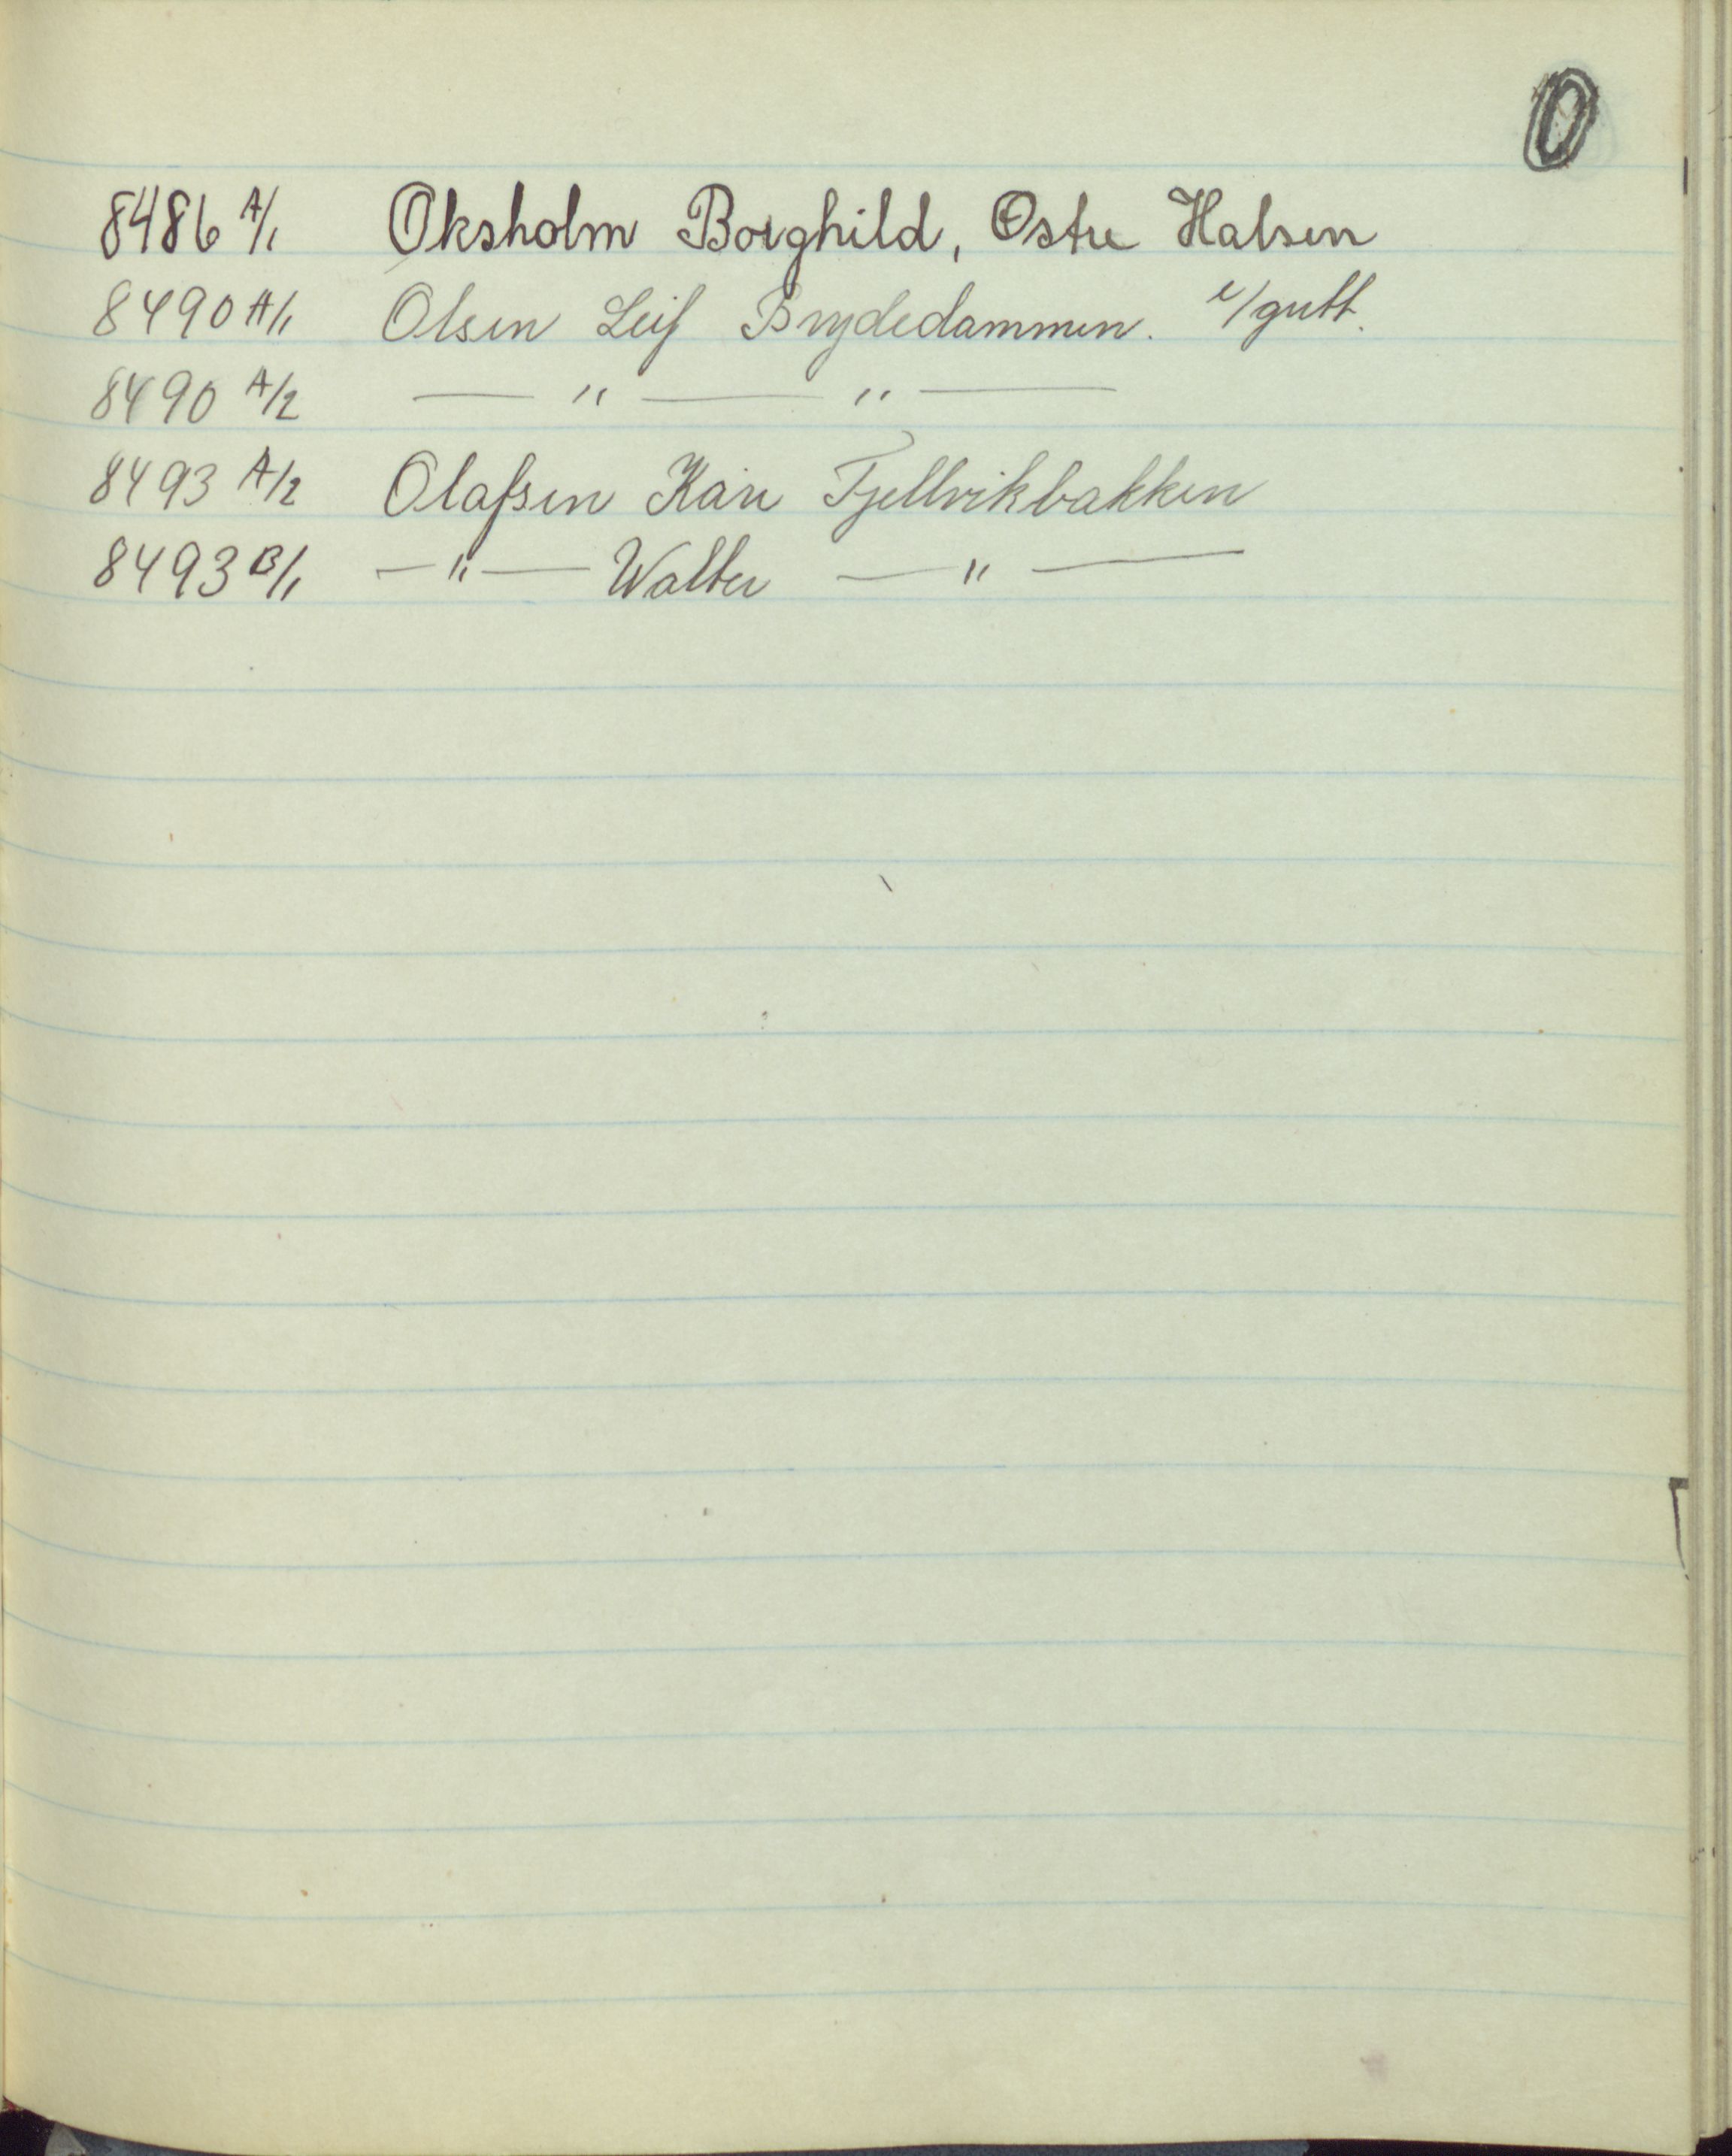 O
8486 A/1 Oksholm Borghild, Østre Halsen
8490 A/1 Olsen Leif Brydedammen. e/gutt.
8490 A/2 — " — " —
8493 A/2 Olafsen Kåre Fjellvikbakken
8493 B/1 — " — Walter — " —